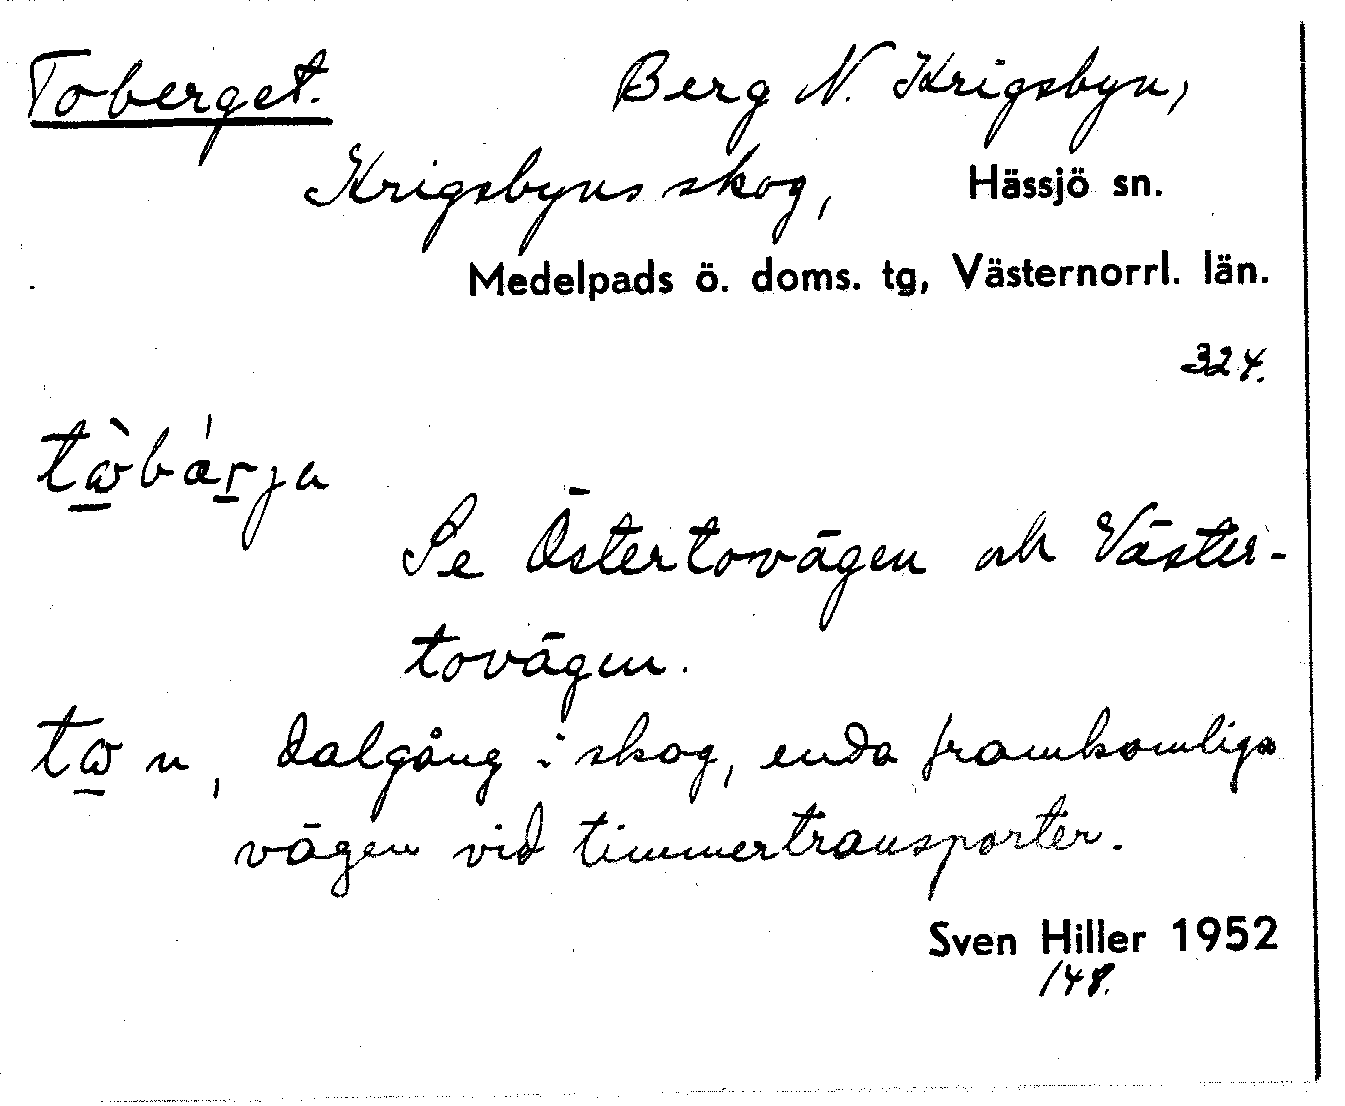 Toberget. Berg N. Krigsbyn,
Krigsbyns skog, Hässjö sn.
Medelpads ö. doms. tg, Västernorrl. län.
324.
tὼbárja
Se Östertovägen och Väster-
tovägen.
tω n, dalgång i skog, enda framkomliga
vägen vid timmertransporter.
Sven Hiller 1952
148.